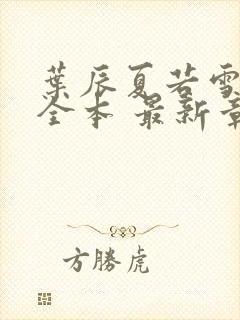 葉辰夏若雪
全本 最新章
方勝虎